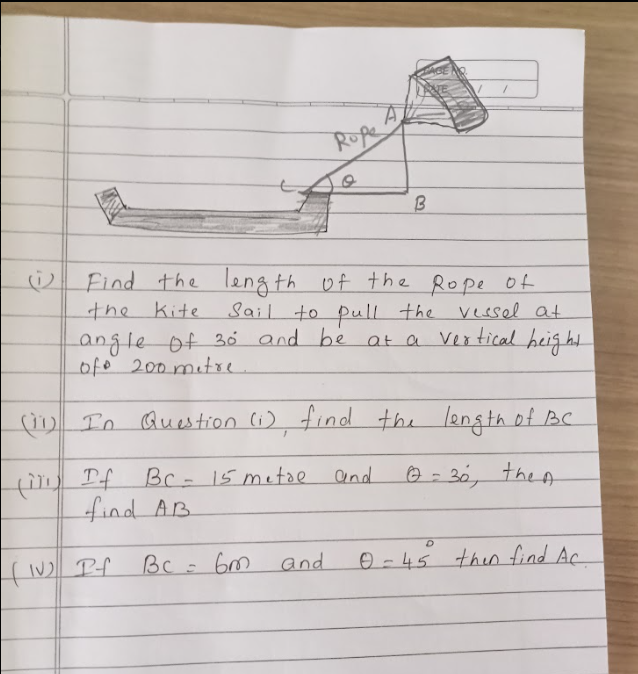 PAGE NO.
DATE / /
A
Rope
C θ
B
(i) Find the length of the Rope of
the Kite Sail to pull the vessel at
angle of 30° and be at a vertical height
of 200 metre.
(ii) In Question (i), find the length of BC
(iii) If BC = 15 metre and θ = 30°, then
find AB
(iv) If BC = 6m and θ = 45° then find AC.